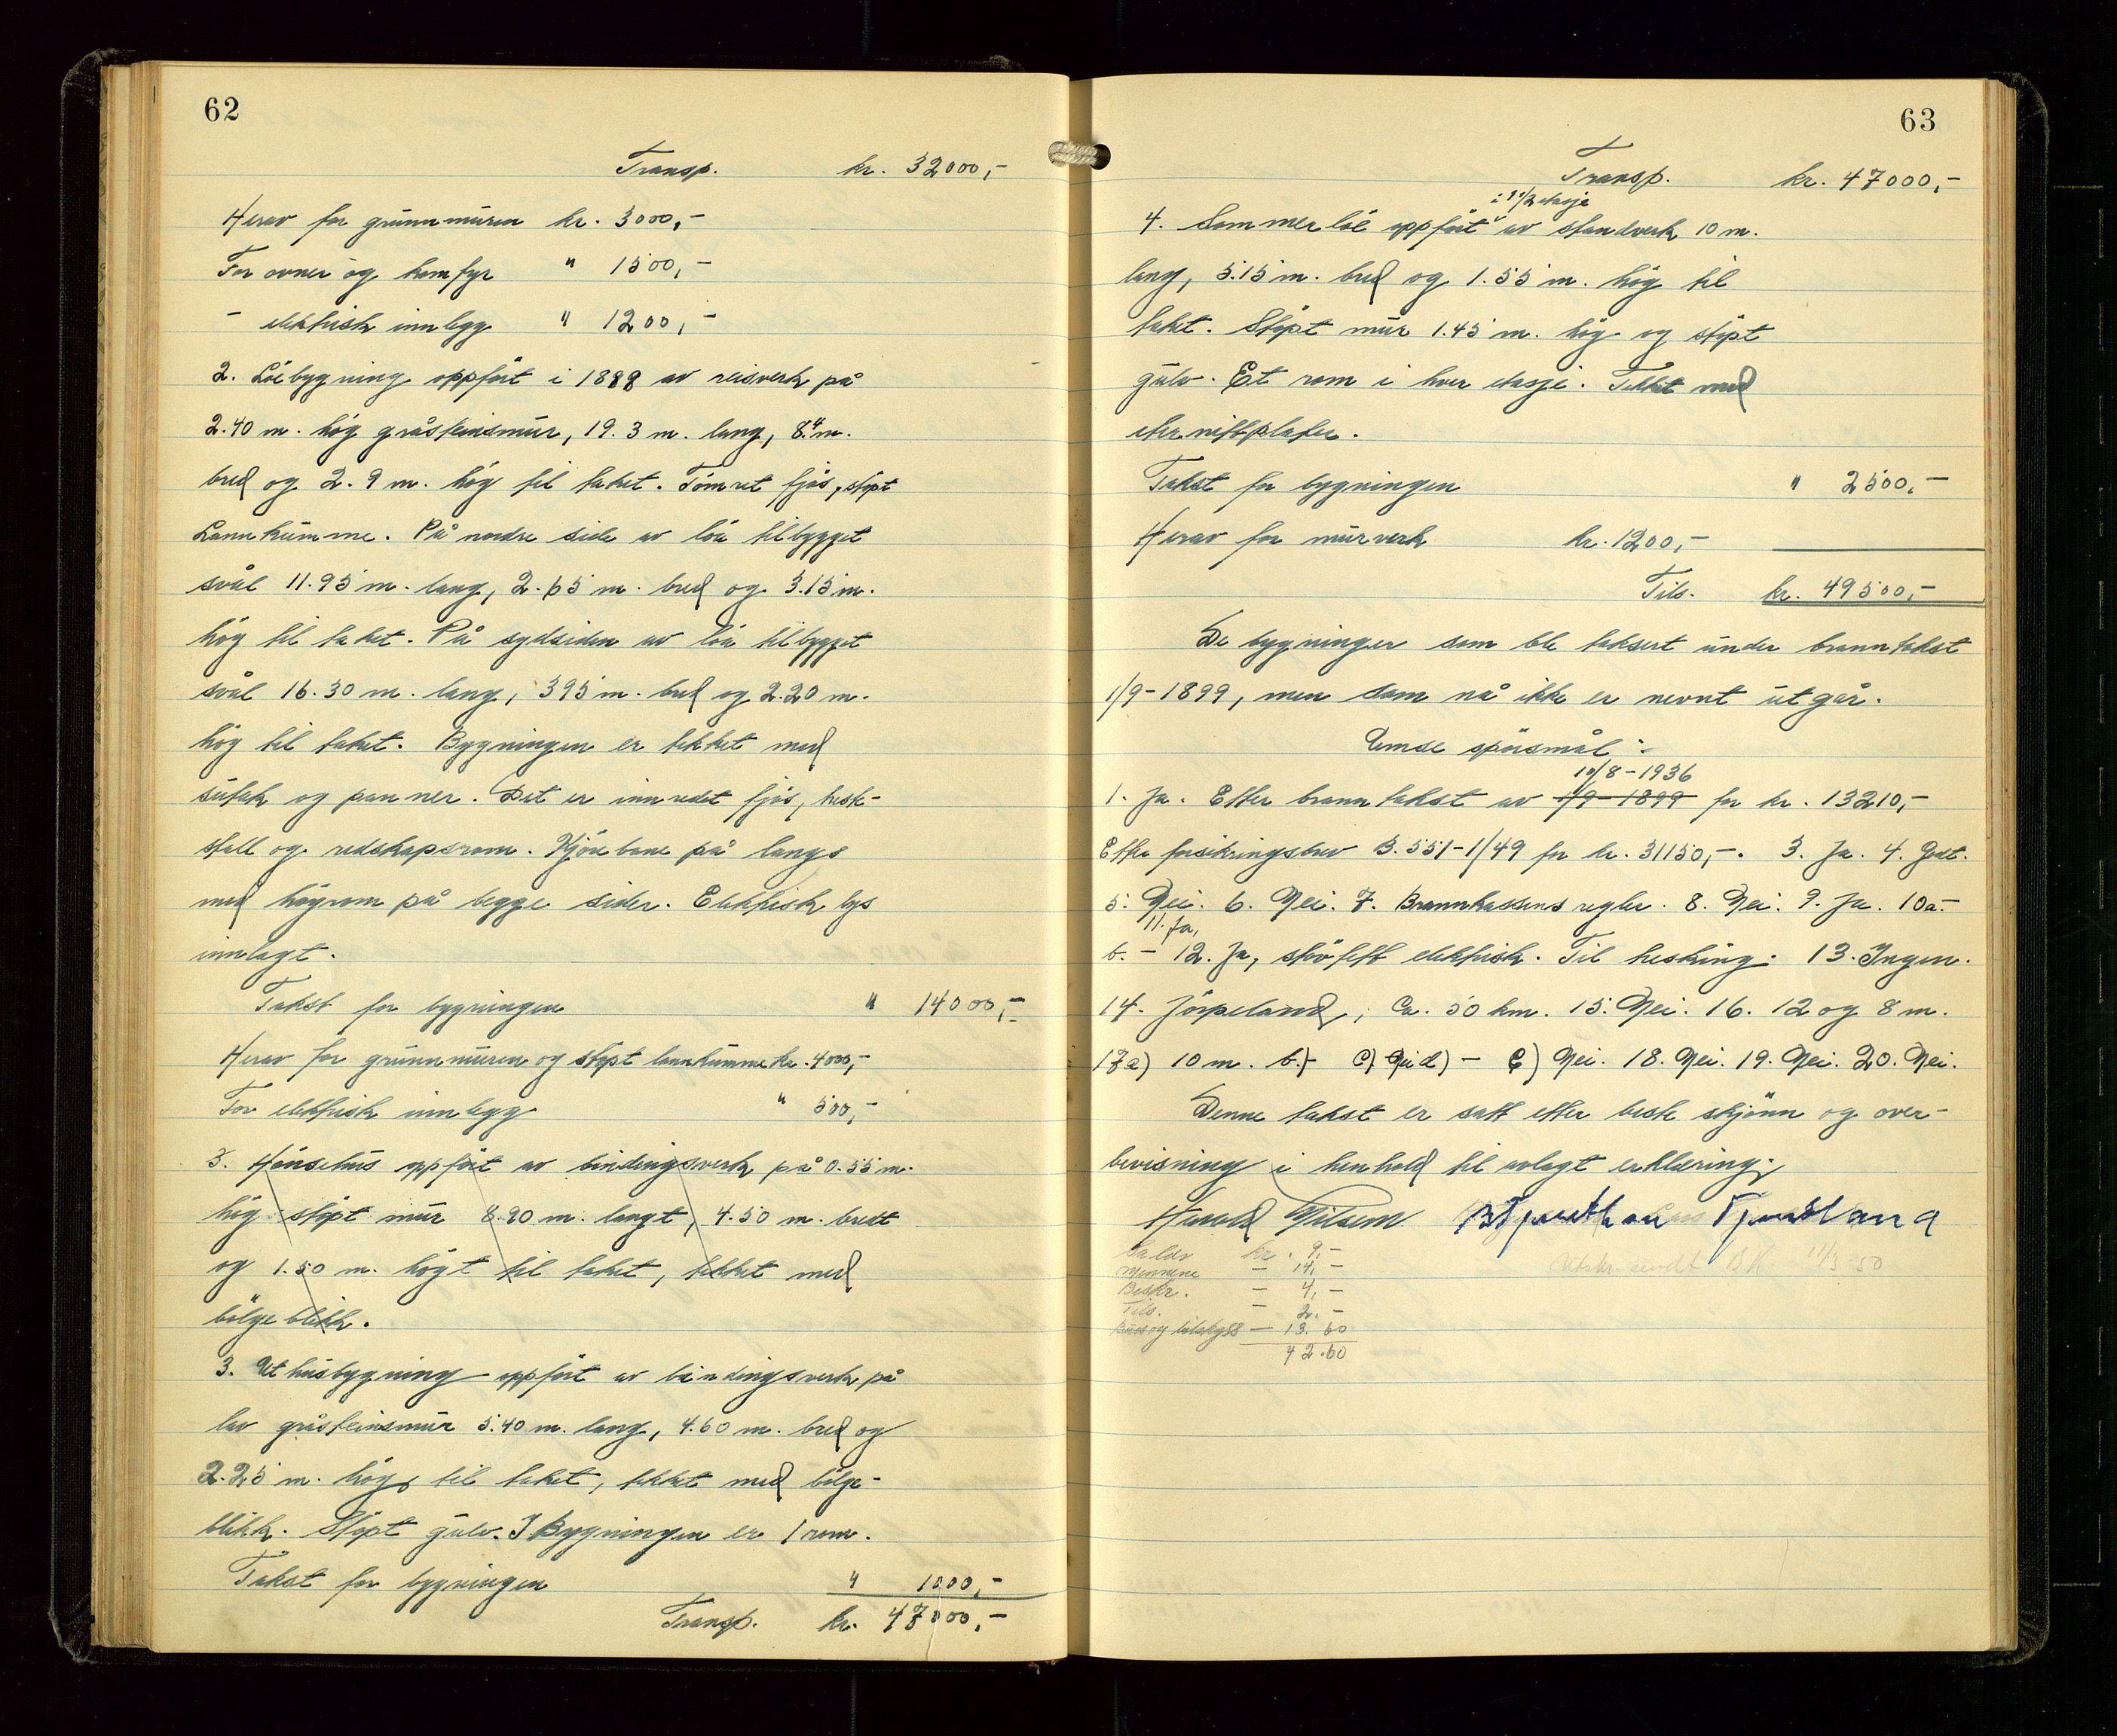 62
Transp. kr. 32000,-
Herav for grunnmuren kr. 3000,-
For ovner og komfyr " 1500,-
- elektrisk innlegg " 1200,-
2. Löebygning oppfört i 1888 av reisverk på
2.40 m. hög gråsteinsmur, 19.3 m. lang, 8.4 m.
bred og 2.9 m. hög til taket. Tömret fjös, stöpt
Lannkumme. På nordre side av löa tilbygget
svål 11.95 m. lang, 2.65 m. bred og 3.15 m.
hög til taket. På sydsiden av löa tilbygget
svål 16.30 m. lang, 3.95 m. bred og 2.20 m.
hög til taket. Bygningen er tekket med
sutak og panner. Det er innredet fjös, hest-
stall og redskapsrom. Kjörebane på langs
med högrom på begge sider. Elektrisk lys
innlagt.
Takst for bygningen " 14000,-
Herav for grunnmuren og stöpt lannkumme kr. 4000,-
For elektrisk innlegg " 500,-
3. Hönsehus oppfört av bindingsverk på 0.55 m.
hög stöpt mur 8.90 m. langt, 4.50 m. bredt
og 1.50 m. högt til taket, tekket med
bölgeblikk.
3. Uthusbygning oppfört av bindingsverk på
lav gråsteinsmur 5.40 m. lang, 4.60 m. bred og
2.25 m. hög til taket, tekket med bölge-
blikk. Stöpt gulv. I Bygningen er 1 rom.
Takst for bygningen " 1000,-
Transp. kr. 47000,-
63
Transp. kr. 47000,-
i 1 1/2 etasje
4. Sommerlöe oppfört av standverk 10 m.
lang, 5.15 m. bred og 1.55 m. hög til
taket. Stöpt mur 1.45 m. hög og stöpt
gulv. Et rom i hver etasje. Tekket med
eternittplater.
Takst for bygningen " 2500,-
Herav for murverk kr. 1200,-
Tils. kr. 49500,-
De bygninger som ble taksert under branntakst
1/9-1899, men som nå ikke er nevnt utgår.
Emse spörsmål:
10/8-1936
1. Ja. Etter branntakst av 1/9-1899 for kr. 13210,-
Etter forsikringsbrev B.551-1/49 for kr. 31150,-. 3. Ja. 4. Godt.
5. Nei. 6. Nei. 7. Brannkassens regler. 8. Nei. 9. Ja. 10a.-
11. Ja,
b. - 12. Ja, elektrisk. Til tresking. 13. Ingen.
14. Jörpeland, Ca. 50 km. 15. Nei. 16. 12 og 8 m.
17a) 10 m. b.)- c) Nei d) - e) Nei. 18. Nei. 19. Nei. 20. Nei.
Denne takst er satt etter beste skjönn og over-
bevisning i henhold til avlagt erklæring.
Harald Nilsen B Tjentland Tjentland
kr. 9,-
- 14,-
Beskr. - 4,-
Tils. - 2,-
Buss og - 13.60
42.60
Utskr. sendt BK 11/3-50